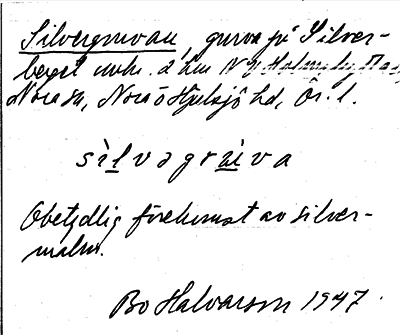 Silvergruvan, gruva på Silver-
berget omkr. 2 km NV
Nora sn, Nora o Hjulsjö hd, Ör. l.
sìlvəgrʉ̀va
Obetydlig förekomst av silver-
malm.
Bo Halvarson 1947.